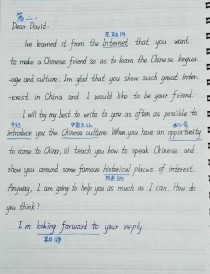 篇二.
Dear David:
互联网
I've learned it from the Internet that you want
to make a Chinese friend so as to learn the Chinese langua-
age and culture. Im glad that you show such great inter-
exest in China and I would like to be your friend.
I will try my best to write to you as often as possible to
介绍 中国文化 机会
introduce you the Chinese culture. When you have an opportunity
to come to China, ill teach you how to speak Chinese and
show you around some famous historical places of interest.
历史的
Anyway, I am going to help you as much as I can. How do
you think?
I'm looking forward to your reply.
期待